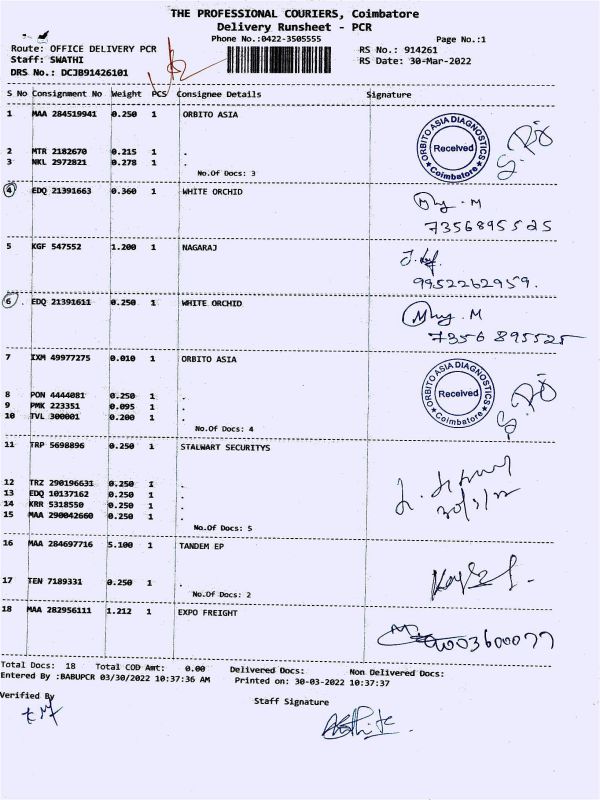 THE PROFESSIONAL COURIERS, Coimbatore
Delivery Runsheet - PCR
Phone No.:0422-3505555
Page No.:1
Route: OFFICE DELIVERY PCR
RS No.: 914261
Staff: SWATHI
RS Date: 30-Mar-2022
DRS No.: DCJB91426101
S No Consignment No Weight PCS Consignee Details Signature
1 MAA 284519941 0.250 1 ORBITO ASIA
ORBITO ASIA DIAGNOSTICS
Received
Coimbatore
2 MTR 2182670 0.215 1 .
3 NKL 2972821 0.278 1 .
No.Of Docs: 3
4 EDQ 21391663 0.360 1 WHITE ORCHID
7356895525
5 KGF 547552 1.200 1 NAGARAJ
9952262959.
6 . EDQ 21391611 0.250 1 WHITE ORCHID
7356 895525
7 IXM 49977275 0.010 1 ORBITO ASIA
ORBITO ASIA DIAGNOSTICS
Received
Coimbatore
8 PON 4444081 0.250 1 .
9 PMK 223351 0.095 1 .
10 TVL 300001 0.200 1 .
No.Of Docs: 4
11 TRP 5698896 0.250 1 STALWART SECURITYS
12 TRZ 290196631 0.250 1 .
13 EDQ 10137162 0.250 1 .
14 KRR 5318550 0.250 1 .
15 MAA 290042660 0.250 1 .
No.Of Docs: 5
30/3/22
16 MAA 284697716 5.100 1 TANDEM EP
17 TEN 7189331 0.250 1 .
No.Of Docs: 2
18 MAA 282956111 1.212 1 EXPO FREIGHT
Total Docs: 18 Total COD Amt: 0.00 Delivered Docs: Non Delivered Docs:
Entered By :BABUPCR 03/30/2022 10:37:36 AM Printed on: 30-03-2022 10:37:37
Verified By
Staff Signature